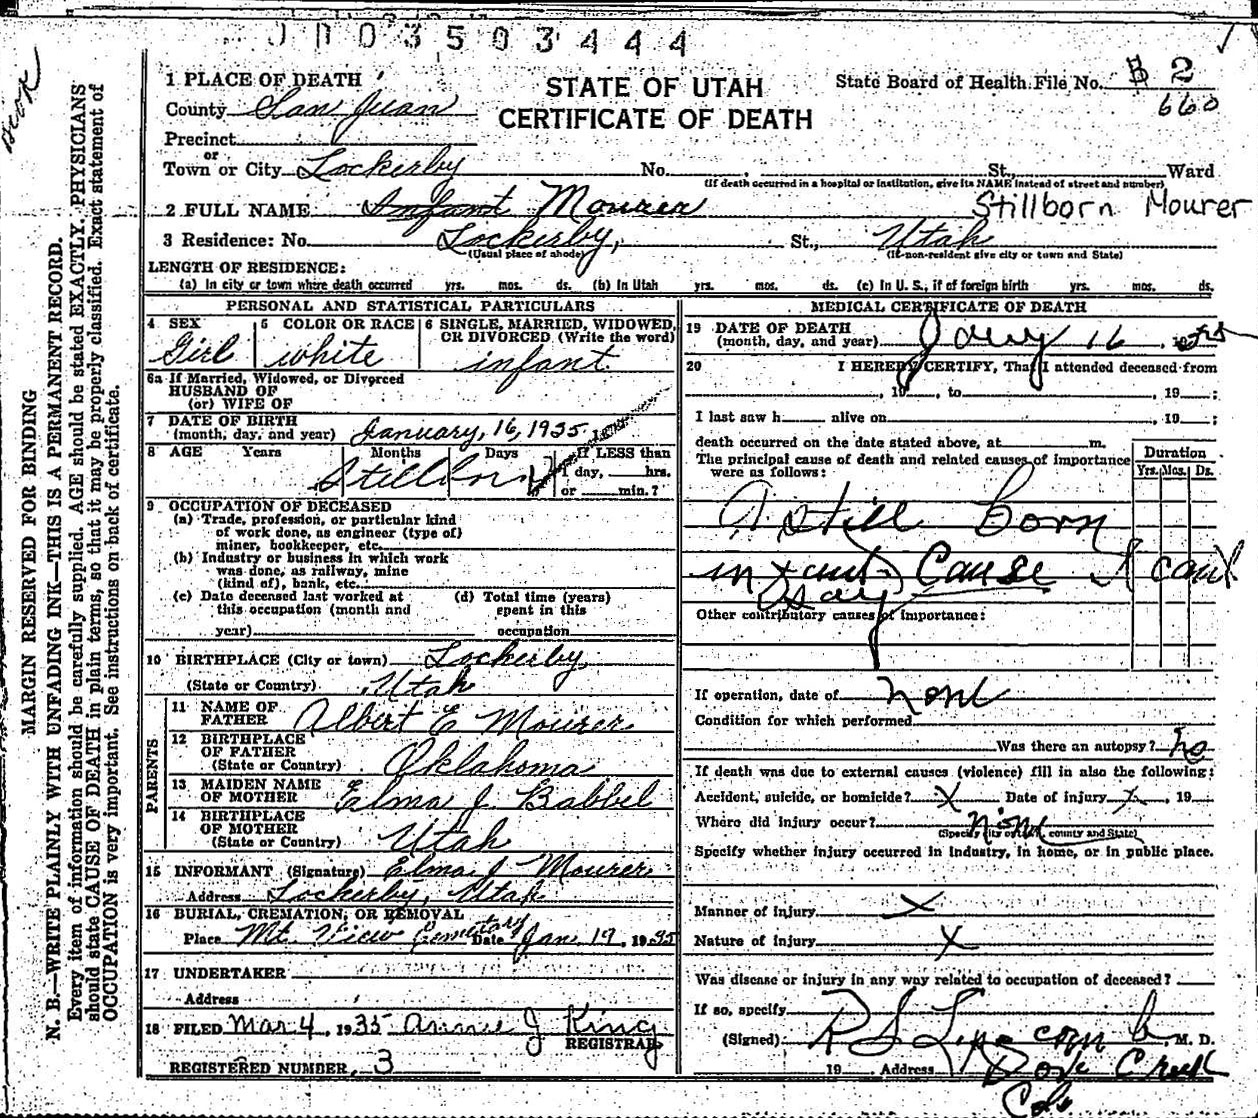 0003503444
1 PLACE OF DEATH
STATE OF UTAH
CERTIFICATE OF DEATH
State Board of Health File No. B 2
660
County San Juan
Precinct
or
Town or City Lockerby No. St., Ward
(If death occurred in a hospital or institution, give its NAME instead of street and number)
2 FULL NAME Infant Mourer Stillborn Mourer
3 Residence: No. Lockerby, St., Utah
(Usual place of abode) (If non-resident give city or town and State)
LENGTH OF RESIDENCE:
(a) In city or town where death occurred yrs. mos. ds. (b) In Utah yrs. mos. ds. (c) In U. S., if of foreign birth yrs. mos. ds.
PERSONAL AND STATISTICAL PARTICULARS
4 SEX 5 COLOR OR RACE 6 SINGLE, MARRIED, WIDOWED, OR DIVORCED (Write the word)
Girl white infant
6a If Married, Widowed, or Divorced
HUSBAND OF
(or) WIFE OF
7 DATE OF BIRTH
(month, day, and year) January, 16, 1935
8 AGE Years Months Days If LESS than
1 day, hrs.
or min.?
Stillborn
9 OCCUPATION OF DECEASED
(a) Trade, profession, or particular kind
of work done, as engineer (type of)
miner, bookkeeper, etc.
(b) Industry or business in which work
was done, as railway, mine
(kind of), bank, etc.
(c) Date deceased last worked at
this occupation (month and
year)
(d) Total time (years)
spent in this
occupation
10 BIRTHPLACE (City or town) Lockerby,
(State or Country) Utah
PARENTS
11 NAME OF
FATHER Albert E Mourer
12 BIRTHPLACE
OF FATHER
(State or Country) Oklahoma
13 MAIDEN NAME
OF MOTHER Elma J. Babbel
14 BIRTHPLACE
OF MOTHER
(State or Country) Utah
15 INFORMANT (Signature) Elma J Mourer
Address Lockerby, Utah
16 BURIAL, CREMATION, OR REMOVAL
Place Mt. View Cemetary Date Jan 19, 1935
17 UNDERTAKER
Address
18 FILED Mar 4, 1935 Annie J King
REGISTRAR
REGISTERED NUMBER, 3
MEDICAL CERTIFICATE OF DEATH
19 DATE OF DEATH
(month, day, and year) Jany 16, 19
20 I HEREBY CERTIFY, That I attended deceased from
, 19 , to , 19 ;
I last saw h alive on , 19 ;
death occurred on the date stated above, at m.
The principal cause of death and related causes of importance
were as follows:
Duration
Yrs. Mos. Ds.
A still born
infant Cause I cant
say
Other contributory causes of importance:
If operation, date of none
Condition for which performed
Was there an autopsy? no
If death was due to external causes (violence) fill in also the following:
Accident, suicide, or homicide? X Date of injury X, 19
Where did injury occur? none
(Specify city or town, county and State)
Specify whether injury occurred in industry, in home, or in public place.
Manner of injury X
Nature of injury X
Was disease or injury in any way related to occupation of deceased?
If so, specify
(Signed) R S , M. D.
19 Address Dove Creek
Colo
MARGIN RESERVED FOR BINDING
N. B.—WRITE PLAINLY WITH UNFADING INK—THIS IS A PERMANENT RECORD.
Every item of information should be carefully supplied. AGE should be stated EXACTLY. PHYSICIANS
should state CAUSE OF DEATH in plain terms, so that it may be properly classified. Exact statement of
OCCUPATION is very important. See instructions on back of certificate.